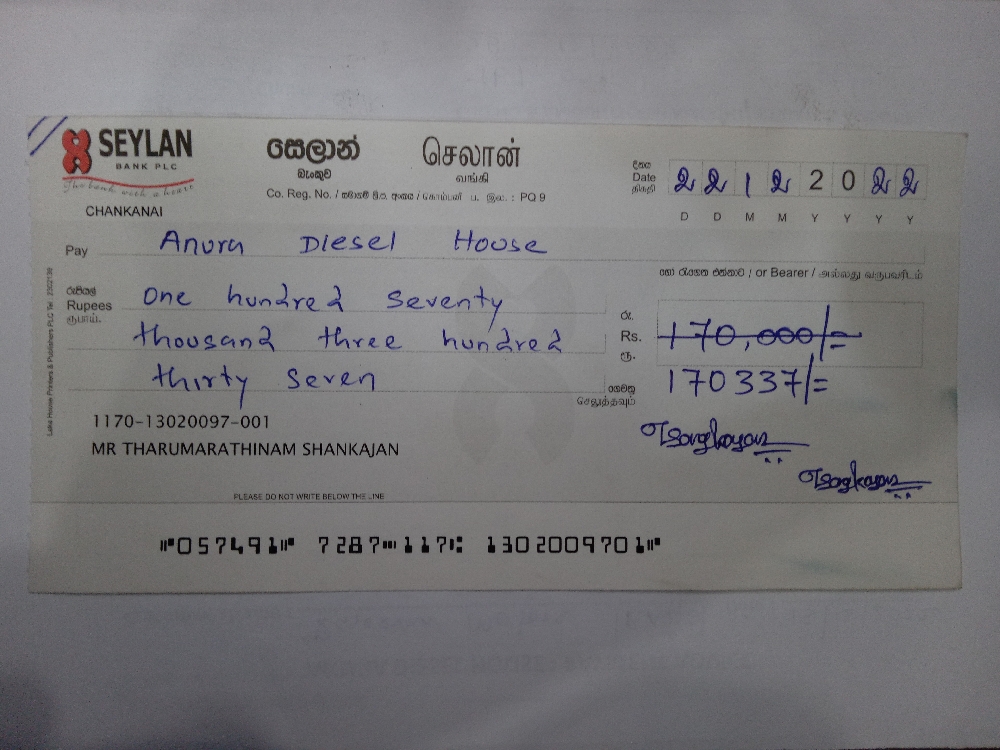 SEYLAN
BANK PLC
The bank with a heart
CHANKANAI
සෙලාන්
බැංකුව
செலான்
வங்கி
Co. Reg. No. / සමාගම් ලි.ප. අංකය / கொம்பனி ப. இல. : PQ 9
දිනය
Date
திகதி
22 12 2022
D D M M Y Y Y Y
Pay Anura Diesel House
හෝ රැගෙන එන්නාට / or Bearer / அல்லது வருபவரிடம்
රුපියල්
Rupees
ரூபாய்.
One hundred seventy
thousand three hundred
thirty seven
ගෙවනු
செலுத்தவும்
රු.
Rs.
ரூ.
170,000/=
170337/=
1170-13020097-001
MR THARUMARATHINAM SHANKAJAN
PLEASE DO NOT WRITE BELOW THE LINE
⑈057491⑈ 7287⑉117⑆ 1302009701⑈
Lake House Printers & Publishers PLC Tel